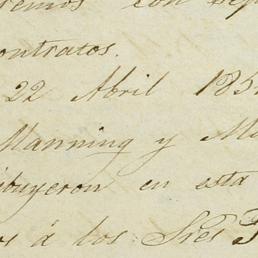 remos con
contratos.
22 Abril 185
Manning y M
buyeron en esta
os á los Sres